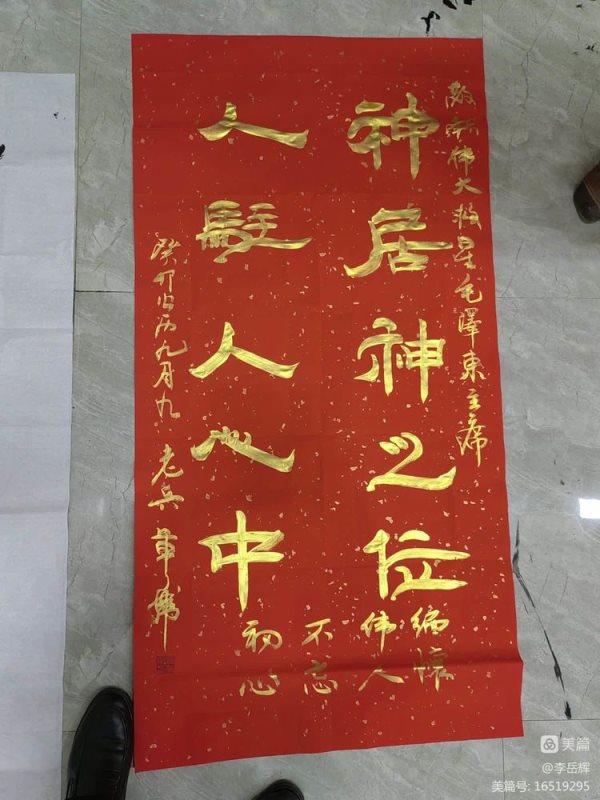 敬献伟大救星毛澤東主席
神居神之位
人駐人心中
缅懷
伟人
不忘
初心
癸卯古历九月九 老兵
美篇
@李岳辉
美篇号: 16519295